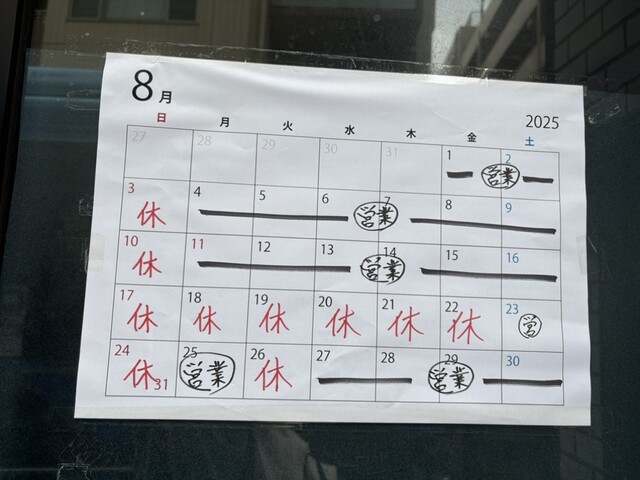 8月
2025
日 月 火 水 木 金 土
27 28 29 30 31 1 2
営業
3 4 5 6 7 8 9
休 営業
10 11 12 13 14 15 16
休 営業
17 18 19 20 21 22 23
休 休 休 休 休 休 営
24 25 26 27 28 29 30
休 31 営業 休 営業